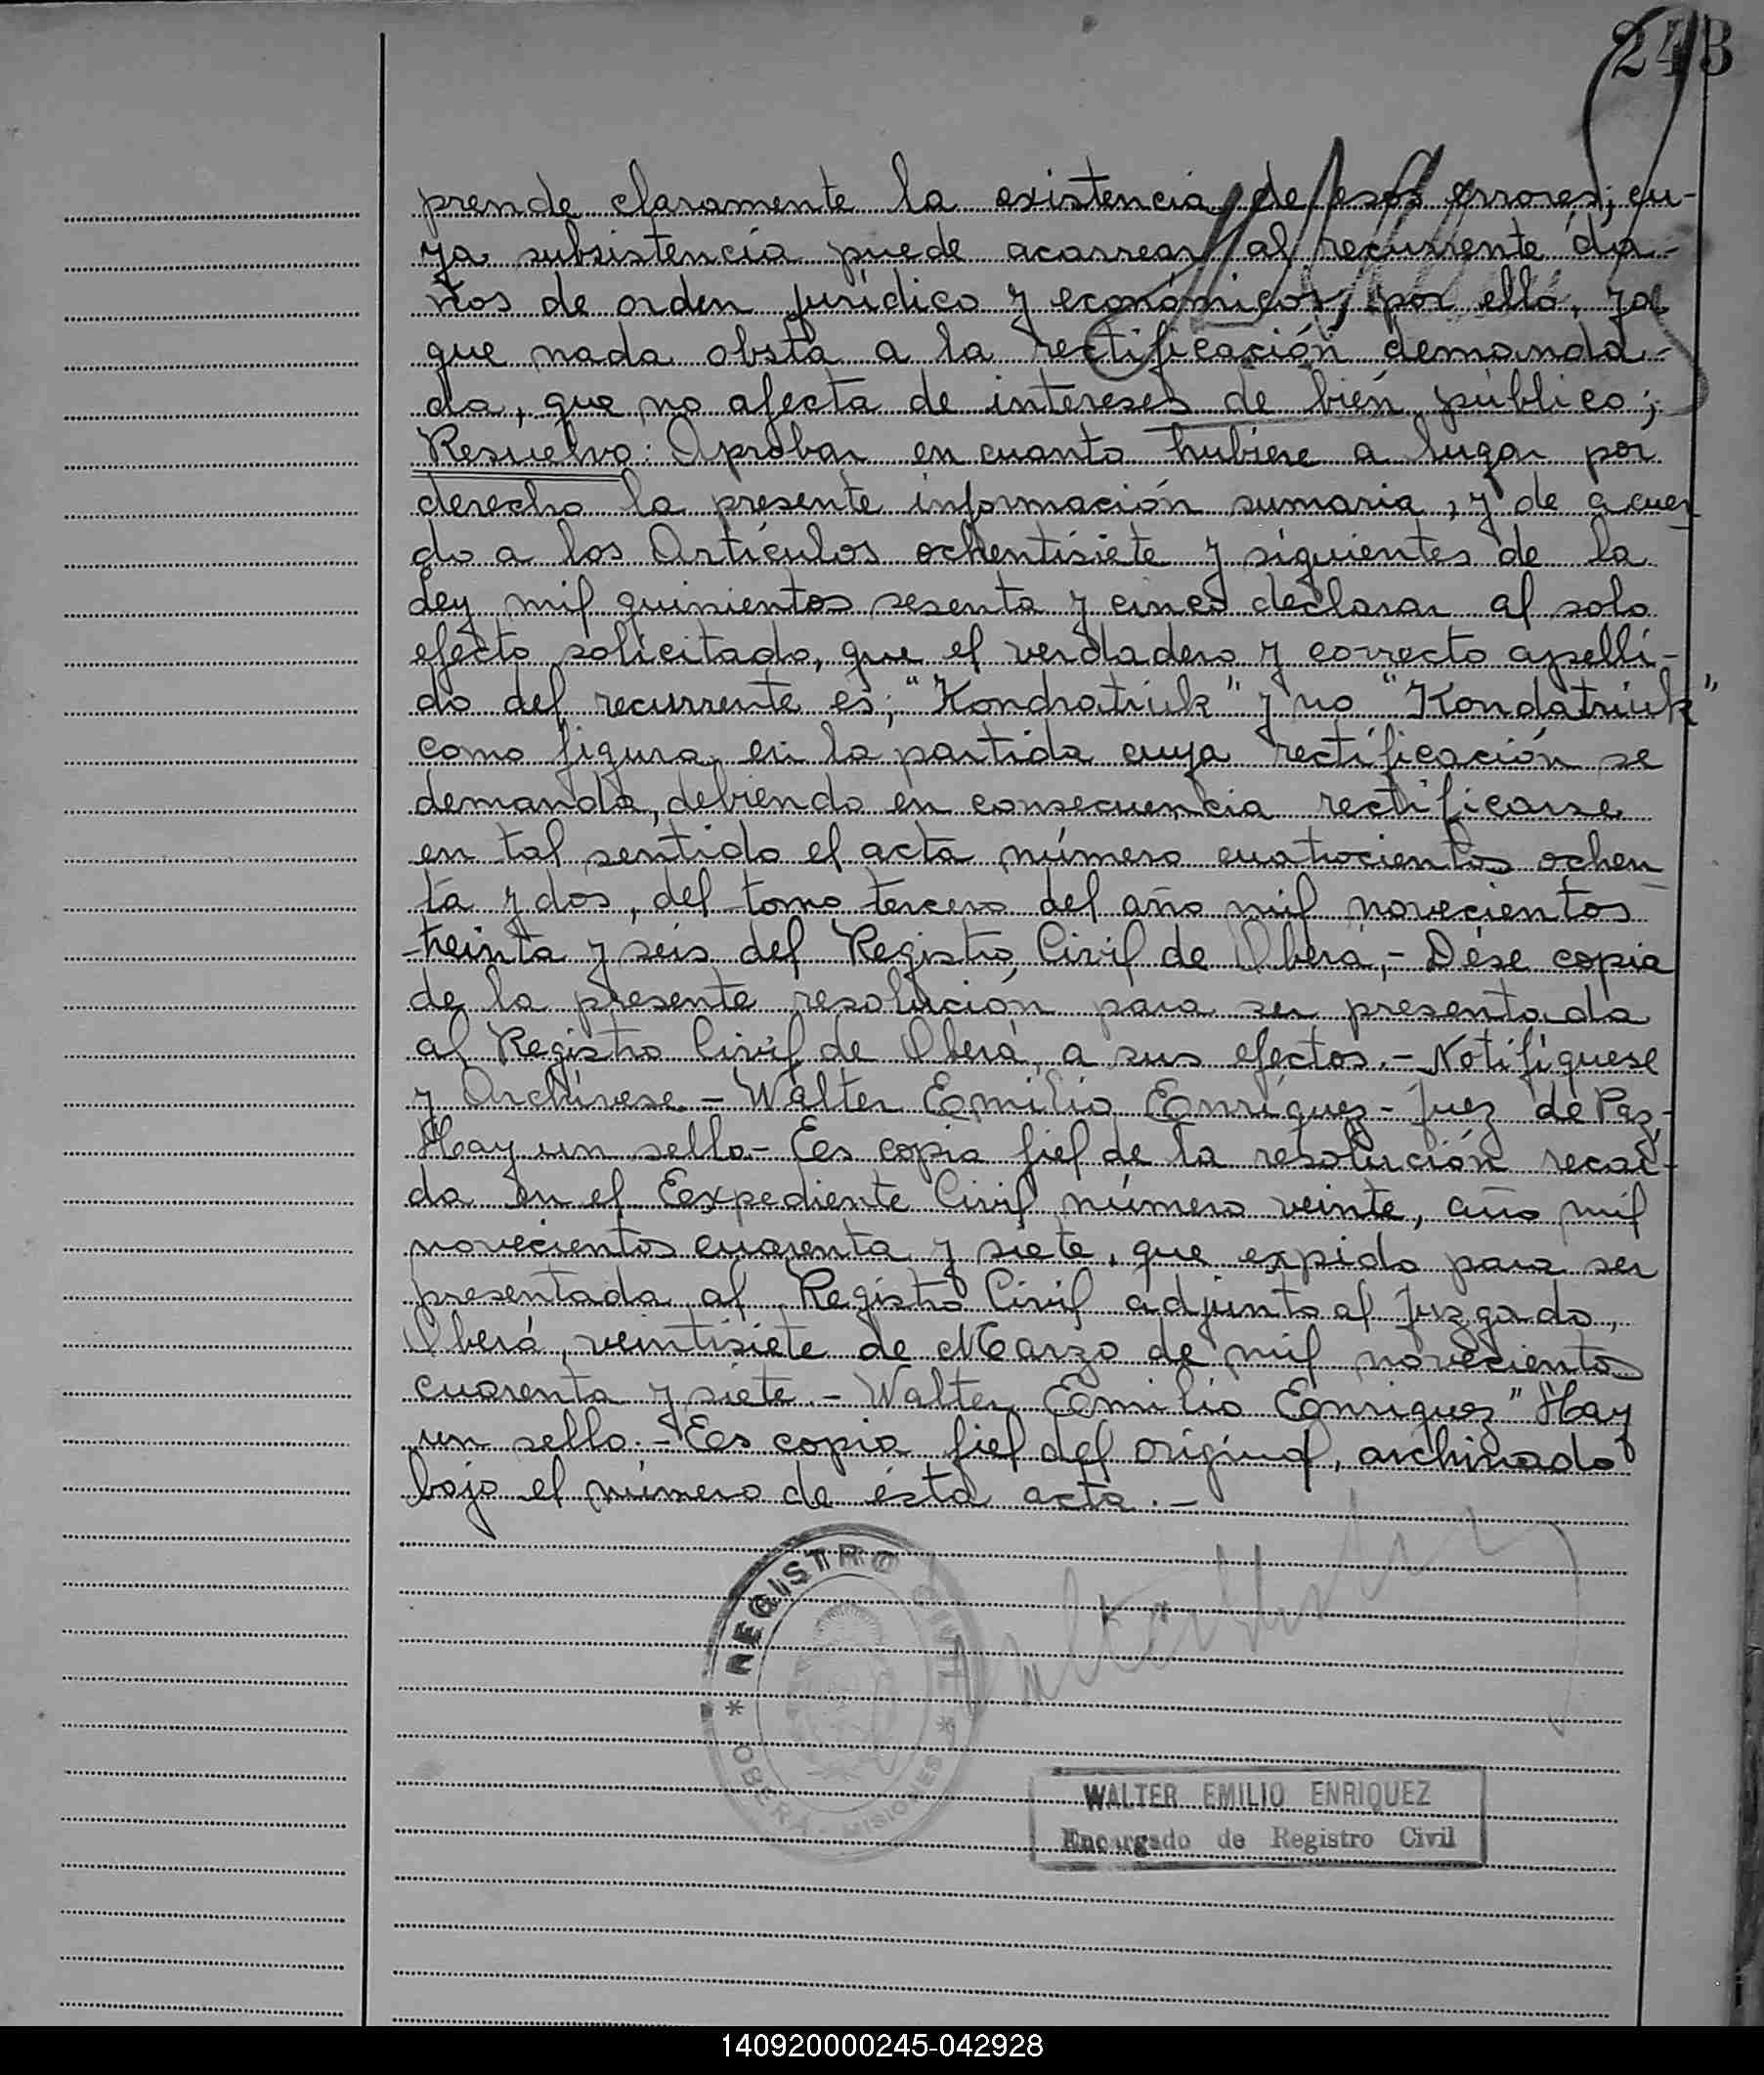 243
prende claramente la existencia de esos errores; cu-
ya subsistencia puede acarrear al recurrente da-
ños de orden jurídico y económicos, por ello, ya
que nada obsta a la rectificación demanda-
da, que no afecta de intereses de bién público;
Resuelvo: Aprobar en cuanto hubiere a lugar por
derecho la presente información sumaria, y de acuer
do a los Artículos ochentisiete y siguientes de la
Ley mil quinientos sesenta y cinco declarar al solo
efecto solicitado, que el verdadero y correcto apelli-
do del recurrente es; "Kondratiuk" y no "Kondatriuk"
como figura en la partida cuya rectificación se
demanda, debiendo en consecuencia rectificarse
en tal sentido el acta número cuatrocientos ochen
ta y dos, del tomo tercero del año mil novecientos
treinta y seis del Registro Civil de Oberá,- Dése copia
de la presente resolución para ser presentada
al Registro Civil de Oberá, a sus efectos.- Notifíquese
y Archívese.- Walter Emilio Enríquez - Juez de Paz,-
Hay un sello- Es copia fiel de la resolución recaí-
da en el Expediente Civil número veinte, año mil
novecientos cuarenta y siete, que expido para ser
presentada al Registro Civil adjunto al Juzgado,
Oberá, veintisiete de Marzo de mil novecientos
cuarenta y siete.- Walter Emilio Enriquez" Hay
un sello.- Es copia fiel del original, archivado
bajo el número de ésta acta.-
REGISTRO CIVIL
* OBERÁ - MISIONES *
WALTER EMILIO ENRIQUEZ
Encargado de Registro Civil
140920000245-042928